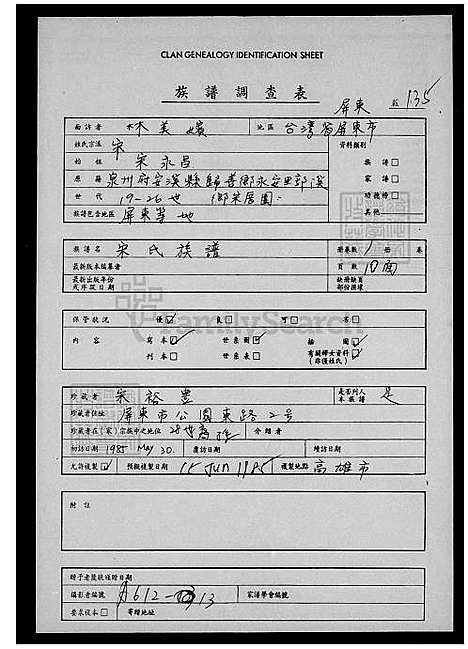 CLAN GENEALOGY IDENTIFICATION SHEET
族譜調查表
屏東 135
面訪者 林美嬪 地區 台灣省屏東市
姓氏宗派 宋 資料類別
始祖 宋永昌 族譜□
原籍 泉州府安溪縣歸善鄉永安里郭溪 家譜□
世代 19-26世 功德榜□
族譜包含地區 屏東等地 其他
族譜名 宋氏族譜 冊卷數 1 冊 卷
最新版本編纂者 頁數 10面
最新出版年份或序跋日期 缺冊缺頁部份損壞
保管狀況 優☑ 良□ 可□ 劣□
內容 寫本☑ 世系圖☑ 插圖☑
刊本□ 世系表□ 有關婦女資料☑ (非僅姓氏)
珍藏者 宋裕豊 是否列入本族譜 是
珍藏者住址 屏東市公園東路2号
珍藏者在(家)宗族中之地位 28世 介紹者
初訪日期 1985 May 30. 復訪日期 續訪日期
允許複製☑ 預擬複製日期 15 Jun 1985 複製地點 高雄市
附註
贈予者簽收獲贈日期
攝影者編號 A612- 13 家譜學會編號
要求複本□ 寄贈地址
FamilySearch